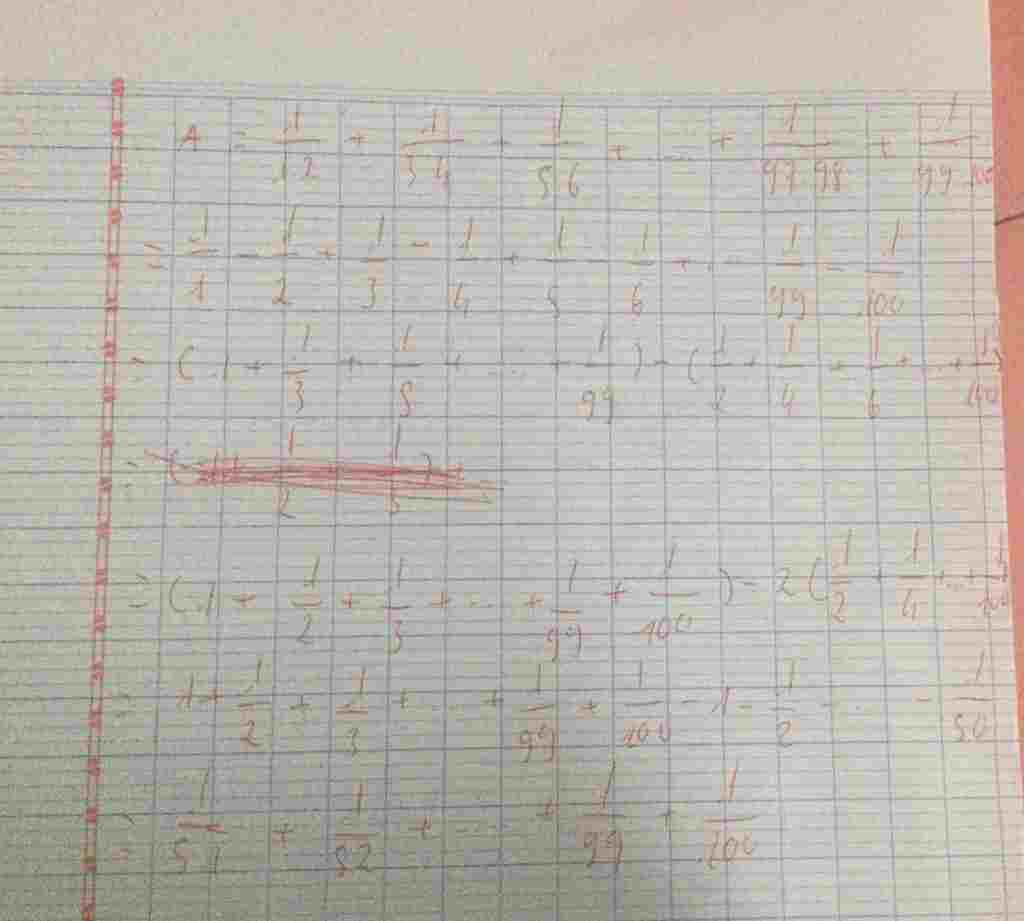 A = 1/1.2 + 1/3.4 + 1/5.6 + ... + 1/97.98 + 1/99.100
= 1/1 - 1/2 + 1/3 - 1/4 + 1/5 - 1/6 + ... 1/99 - 1/100
= (1 + 1/3 + 1/5 + ... + 1/99) - (1/2 + 1/4 + 1/6 + ... + 1/100)
= (1 + 1/2 + 1/3 + ... + 1/99 + 1/100) - 2(1/2 + 1/4 + ... + 1/100
= 1 + 1/2 + 1/3 + ... + 1/99 + 1/100 - 1 - 1/2 - ... - 1/50
= 1/51 + 1/52 + ... + 1/99 + 1/100